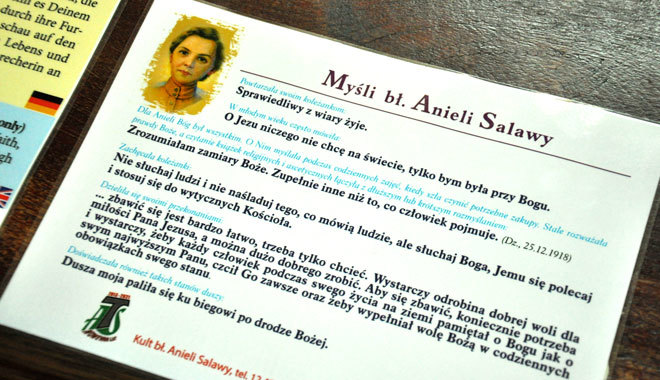 es in Deinem
durch ihre Für-
schau auf den
Lebens und
precherin an
only)
mith,
ugh
Myśli bł. Anieli Salawy
Powtarzała swoim koleżankom:
Sprawiedliwy z wiary żyje.
W młodym wieku często mówiła:
O Jezu niczego nie chcę na świecie, tylko bym była przy Bogu.
Dla Anieli Bóg był wszystkim. O Nim myślała podczas codziennych zajęć, kiedy szła czynić potrzebne zakupy. Stale rozważała
prawdy Boże, a czytanie książek religijnych i ascetycznych łączyła z dłuższym lub krótszym rozmyślaniem:
Zrozumiałam zamiary Boże. Zupełnie inne niż to, co człowiek pojmuje. (Dz., 25.12.1918)
Zachęcała koleżanki:
Nie słuchaj ludzi i nie naśladuj tego, co mówią ludzie, ale słuchaj Boga, Jemu się polecaj
i stosuj się do wytycznych Kościoła.
Dzieliła się swoimi przekonaniami:
... zbawić się jest bardzo łatwo, trzeba tylko chcieć. Wystarczy odrobina dobrej woli dla
miłości Pana Jezusa, a można dużo dobrego zrobić. Aby się zbawić, koniecznie potrzeba
i wystarczy, żeby każdy człowiek podczas swego życia na ziemi pamiętał o Bogu jak o
swym najwyższym Panu, czcił Go zawsze oraz żeby wypełniał wolę Bożą w codziennych
obowiązkach swego stanu.
Doświadczała również takich stanów duszy:
Dusza moja paliła się ku biegowi po drodze Bożej.
ATS
Kult bł. Anieli Salawy, tel. 12